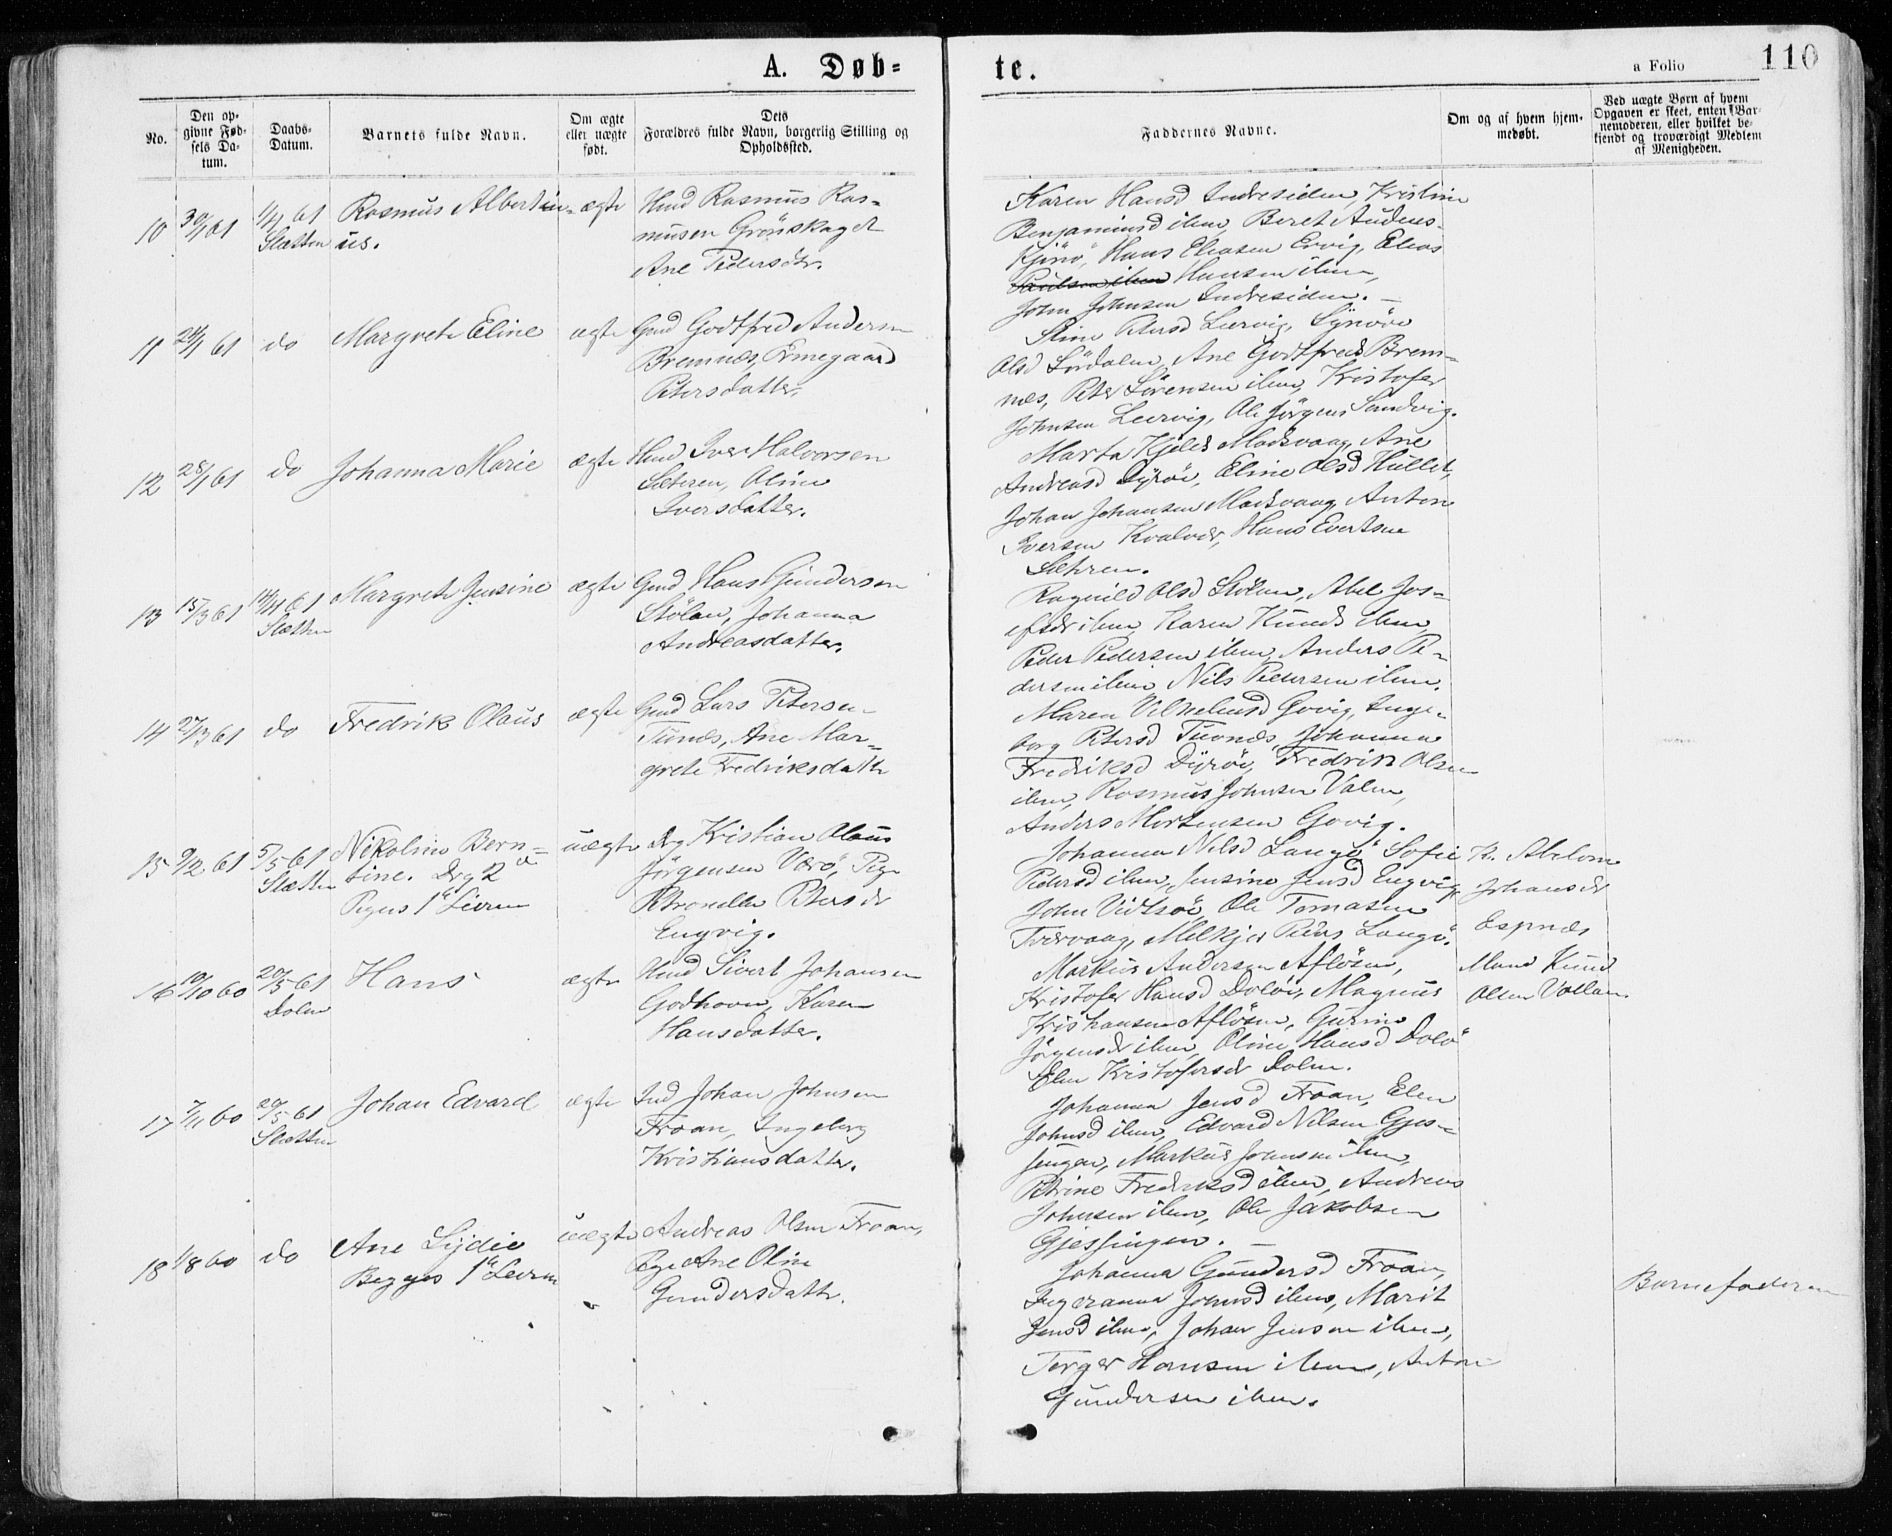 A. Døb-
te.
a Folio
110
No.
Den op-
givne Fød-
sels Da-
tum.
Daabs-
Datum.
Barnets fulde Navn.
Om ægte
eller uægte
født.
Dets
Forældres fulde Navn, borgerlig Stilling og
Opholdssted.
Faddernes Navne.
Om og af hvem hjem-
medøbt.
Ved uægte Børn af hvem
Opgaven er skeet, enten Bar-
nemoderen, eller hvilket be-
kjendt og troværdigt Medlem
af Menigheden.
10 30/1 61 1/4 61 Rasmus Albertin- ægte Hmd Rasmus Ras-
Sletten us. musen Grönskaget
Ane Pedersdtr.
Karen Hansd Indresiden, Kristine
Benjaminsd ibm, Beret Anders-
Kjönö, Hans Eliasen Ervig, Elias
Hansen ibm,
John Johnsen Indresiden. —
11 24/1 61 do Margrete Eline ægte Gmd Godtfred Andersen
Bremnes, Ermegaard
Petersdatter.
Stine Petersd Leervig, Synöve
Olsd Sördalen, Ane Godtfreds Brem-
nes, Peter Sörensen ibm, Kristofer
Johnsen Leervig, Ole Jörgens Sandvig.
12 28/1 61 do Johanna Marie ægte Hmd Iver Halvorsen
Sæteren, Oline
Iversdatter.
Marta Kjelds Madsvaag, Ane
Andreasd Dyröi, Eline Olsd Hullet,
Johan Johansen Madsvaag, Anton
Iversen Kvalvær, Hans Evertsen
Sætren.
13 15/3 61 14/4 61 Margrete Jensine ægte Gmd Hans Gundersen
Sletten Stölan, Johanna
Andreasdatter.
Ragnild Olsd Stölan, Abel Jos-
efsdr ibm, Karen Knuds ibm,
Peder Pedersen ibm, Anders Pe-
dersen ibm, Nils Petersen ibm.
14 27/3 61 do Fredrik Olaus ægte Gmd Lars Petersen
Tunes, Ane Mar-
grete Fredriksdatter
Maren Vilhelmsd Govig, Inge-
borg Petersd Tuvnes, Johanna
Fredriksd Dyröi, Fredrik Olsen
ibm, Rasmus Johnsen Valen,
Anders Mortensen Govig.
15 9/2 61 5/5 61 Nikoline Bern- uægte Drg Kristian Olaus
Sletten tine. Drg 2d Jörgensen Værö, Pige
Pigens 1st Leierm Petronelle Petersdr
Engvig.
Johanna Nilsd Langö Sofie
Pedersd ibm, Jensine Jensd Engvig,
John Vidtsöe, Ole Tomasen
Tverrvaag, Melkjer Peders Langö.
K. Abelone
Johansdr
Espnes
16 10/10 60 20/5 61 Hans ægte Hmd Sivert Johansen
Dolm Godhavn, Karen
Hansdatter.
Markus Andersen Aflösen,
Kristofer Hansd Dolöi, Magnus
Kristiansen Aflösen, Gurine
Jörgensdr ibm, Oline Hansd Dolö
Elen Kristofersdr Dolm.
Mand Knud
Olsen Vollan
17 7/11 60 20/5 61 Johan Edvard ægte Ind Johan Johnsen
Sletten Froan, Ingeborg
Kristiansdatter.
Johanna Jensd Froan, Elen
Johnsd ibm, Edvard Nilsen Gjes-
singen, Markus Johnsen ibm,
Petrine Fredriksd ibm, Andreas
Johnsen ibm, Ole Jakobsen
Gjessingen. —
18 1/8 60 do Ane Lydie uægte Andreas Olsen Froan,
Begges 1st Leierm Pige Ane Oline
Gundersdatter.
Johanna Gundersd Froan,
Ingeranna Johnsd ibm, Marit
Jensd ibm, Johan Jensen ibm,
Torger Hansen ibm, Anton
Gundersen ibm.
Barnefaderen